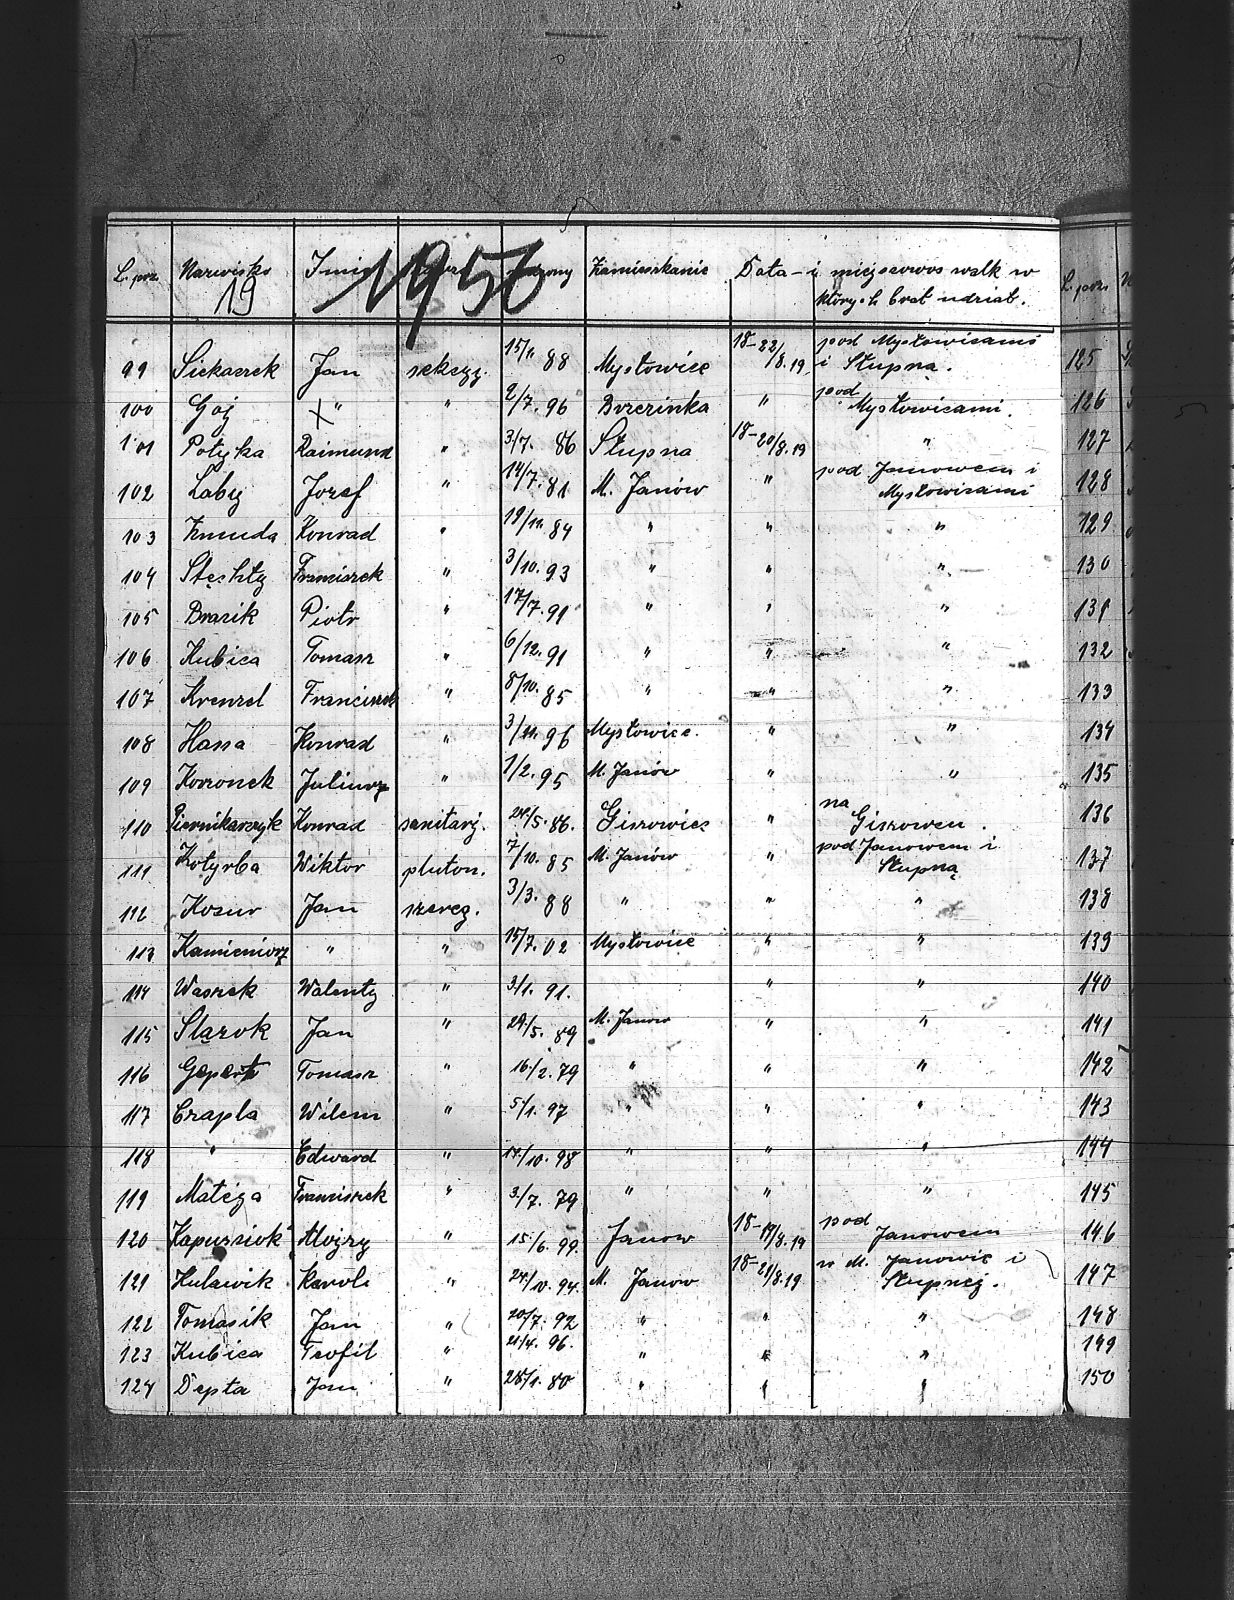 L. porz. Nazwisko Imię urodzony Zamieszkanie Data i miejscowość walk w
19 1956 których brał udział.
15/11 88 18-22/8.19 pod Mysłowicami
99 Siekaczek Jan Mysłowice i Słupną.
100 Goj X " " 2/7. 96 Brzezinka " pod Mysłowicami.
101 Potyka Raimund " 3/7. 86 Słupna 18-20/8.19 "
102 Laby Jozef " 14/7. 81 M. Janów " pod Janowem i
Mysłowicami
103 Żmuda Konrad " 19/11. 84 " " "
104 Stęchły Franciszek " 3/10. 93 " " "
105 Brasik Piotr " 17/7. 91 " " "
106 Kubica Tomasz " 6/12. 91 " " "
107 Krenzel Franciszek " 8/10. 85 " " "
108 Hassa Konrad " 3/11. 96 Mysłowice. " "
109 Juliusz " 1/2. 95 M. Janów " "
110 Piernikarczyk Konrad sanitarj. 24/5. 86. Giszowiec " na Giszowcu.
111 Kotyrba Wiktor pluton. 7/10. 85 M. Janów " pod Janowem i
Słupną
112 Kozur Jan szereg. 3/3. 88 " " "
113 Kamieniorz " " 15/7. 02 Mysłowice " "
114 Waszek Walenty " 3/1. 91. " "
115 Jan " 29/5. 89 M. Janow " "
116 Tomasz " 16/2. 79 " " "
117 Czapla Wilem " 5/1. 97 " " "
118 " Edward " 17/10. 98 " " "
119 Mateja Franciszek " 3/7. 79 " " "
120 Kapuściok Alojzy " 15/6. 99. Janow 18-19/8.19 pod Janowem
121 Kulawik Karol " 24/10. 94. M. Janow 18-21/8.19 w M. Janowie i
Słupnej.
122 Tomasik Jan " 20/7. 92 " " "
123 Kubica Teofil " 21/4. 96. " " "
124 Depta Jan " 28/1. 80 " " "
L. porz.
125
126
127
128
129
130
131
132
133
134
135
136
137
138
139
140
141
142
143
144
145
146
147
148
149
150